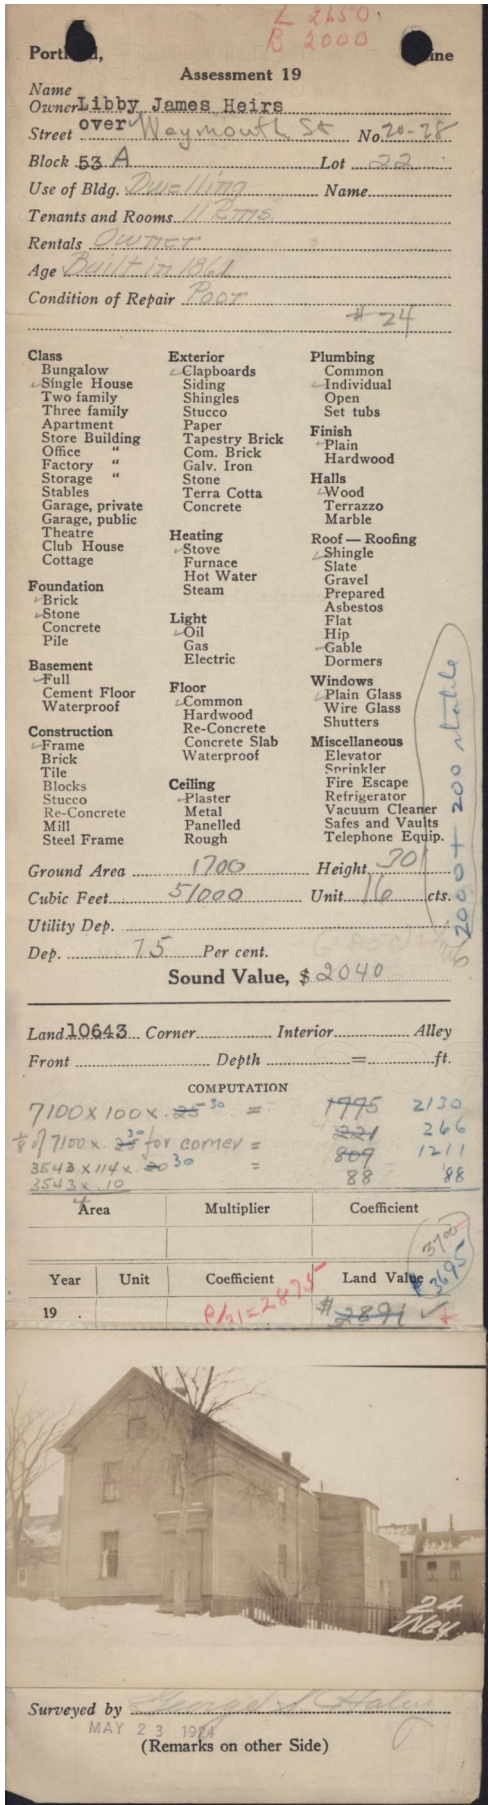 L 2650.
B 2000
Portland, Maine
Assessment 19
Name
Owner Libby James Heirs
over
Street Weymouth St No. 20-28
Block 53 A Lot 22
Use of Bldg. Dwelling Name
Tenants and Rooms 11 Rms.
Rentals Owner
Age Built in 1861
Condition of Repair Poor
# 24
Class
Bungalow
Single House
Two family
Three family
Apartment
Store Building
Office "
Factory "
Storage "
Stables
Garage, private
Garage, public
Theatre
Club House
Cottage
Foundation
Brick
Stone
Concrete
Pile
Basement
Full
Cement Floor
Waterproof
Construction
Frame
Brick
Tile
Blocks
Stucco
Re-Concrete
Mill
Steel Frame
Exterior
Clapboards
Siding
Shingles
Stucco
Paper
Tapestry Brick
Com. Brick
Galv. Iron
Stone
Terra Cotta
Concrete
Heating
Stove
Furnace
Hot Water
Steam
Light
Oil
Gas
Electric
Floor
Common
Hardwood
Re-Concrete
Concrete Slab
Waterproof
Ceiling
Plaster
Metal
Panelled
Rough
Plumbing
Common
Individual
Open
Set tubs
Finish
Plain
Hardwood
Halls
Wood
Terrazzo
Marble
Roof — Roofing
Shingle
Slate
Gravel
Prepared
Asbestos
Flat
Hip
Gable
Dormers
Windows
Plain Glass
Wire Glass
Shutters
Miscellaneous
Elevator
Sprinkler
Fire Escape
Refrigerator
Vacuum Cleaner
Safes and Vaults
Telephone Equip.
2000 + 200 stable
Ground Area 1700 Height 30'
Cubic Feet 51000 Unit 16 cts.
Utility Dep.
Dep. 75 Per cent.
Sound Value, $ 2040
Land 10643 Corner Interior Alley
Front Depth = ft.
COMPUTATION
7100 x 100 x 25 30 = 1775 2130
1/8 of 7100 x 25 30 for corner = 221 266
3543 x 114 x 20 30 = 809 1211
3543 x .10 88 88
Area Multiplier Coefficient
3700
Year Unit Coefficient Land Value $3695
19 P/21 = 2875 $ 2891
24
Wey
Surveyed by George
MAY 23 1924
(Remarks on other Side)